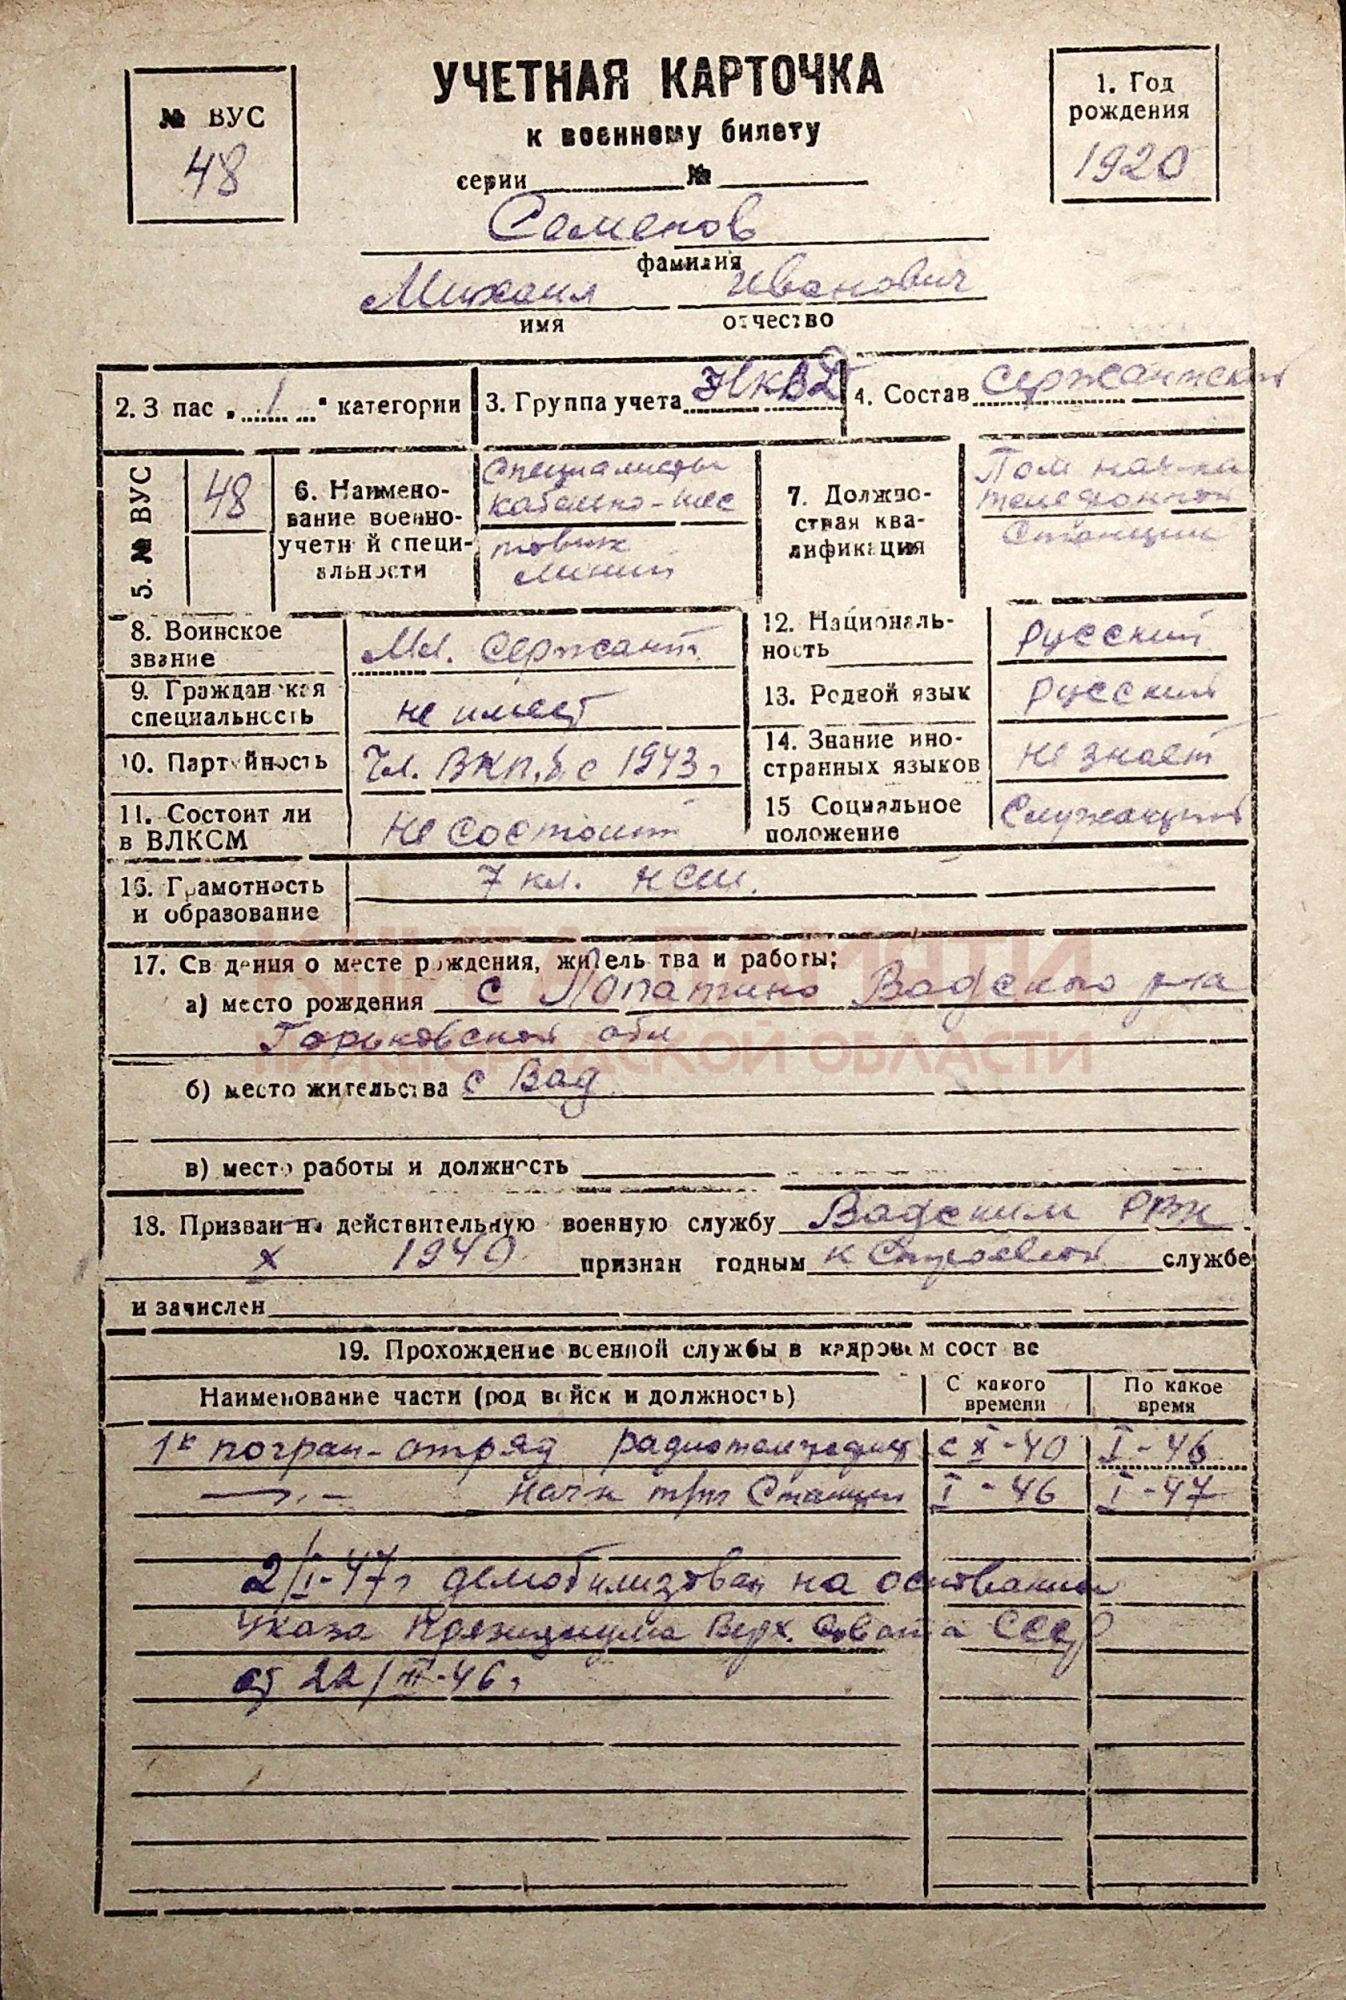 УЧЕТНАЯ КАРТОЧКА
к военному билету
серии № 
№ ВУС
48
1. Год
рождения
1920
Семенов
фамилия
Михаил Иванович
имя отчество
2. З пас „ I " категории
3. Группа учета НКВД
4. Состав Сержантский
5. № ВУС
48
6. Наимено-
вание военно-
учетн й специ-
альности
Специалисты
кабельно-шес
товых
линий
7. Должно-
стная ква-
лификация
Пом нач-ка
телефонной
Станции
8. Воинское
звание
Мл. сержант
9. Гражданская
специальность
не имеет
10. Партийность
Чл. ВКП.б. с 1943 г
11. Состоит ли
в ВЛКСМ
Не состоит
12. Националь-
ность
русский
13. Родной язык
русский
14. Знание ино-
странных языков
не знает
15 Социальное
положение
Служащий
16. Грамотность
и образование
7 кл. НСШ.
КНИГА ПАМЯТИ
НИЖЕГОРОДСКОЙ ОБЛАСТИ
17. Св дения о месте рождения, житель тва и работы;
а) место рождения с Лопатино Вадского р-на
Горьковской обл
б) место жительства с Вад
в) место работы и должность
18. Призван на действительную военную службу Вадским РВК
X 1940 признан годным к Строевой службе
и зачислен
19. Прохождение военной службы в кадровом сост ве
Наименование части (род войск и должность)
С какого
времени
По какое
время
погран-отряд радиотелеграфист с X-40 I-46
—„— Нач Станции I-46 I-47
2/I-47г демобилизован на основании
Указа Президиума Верх. Совета СССР
от /III-46г